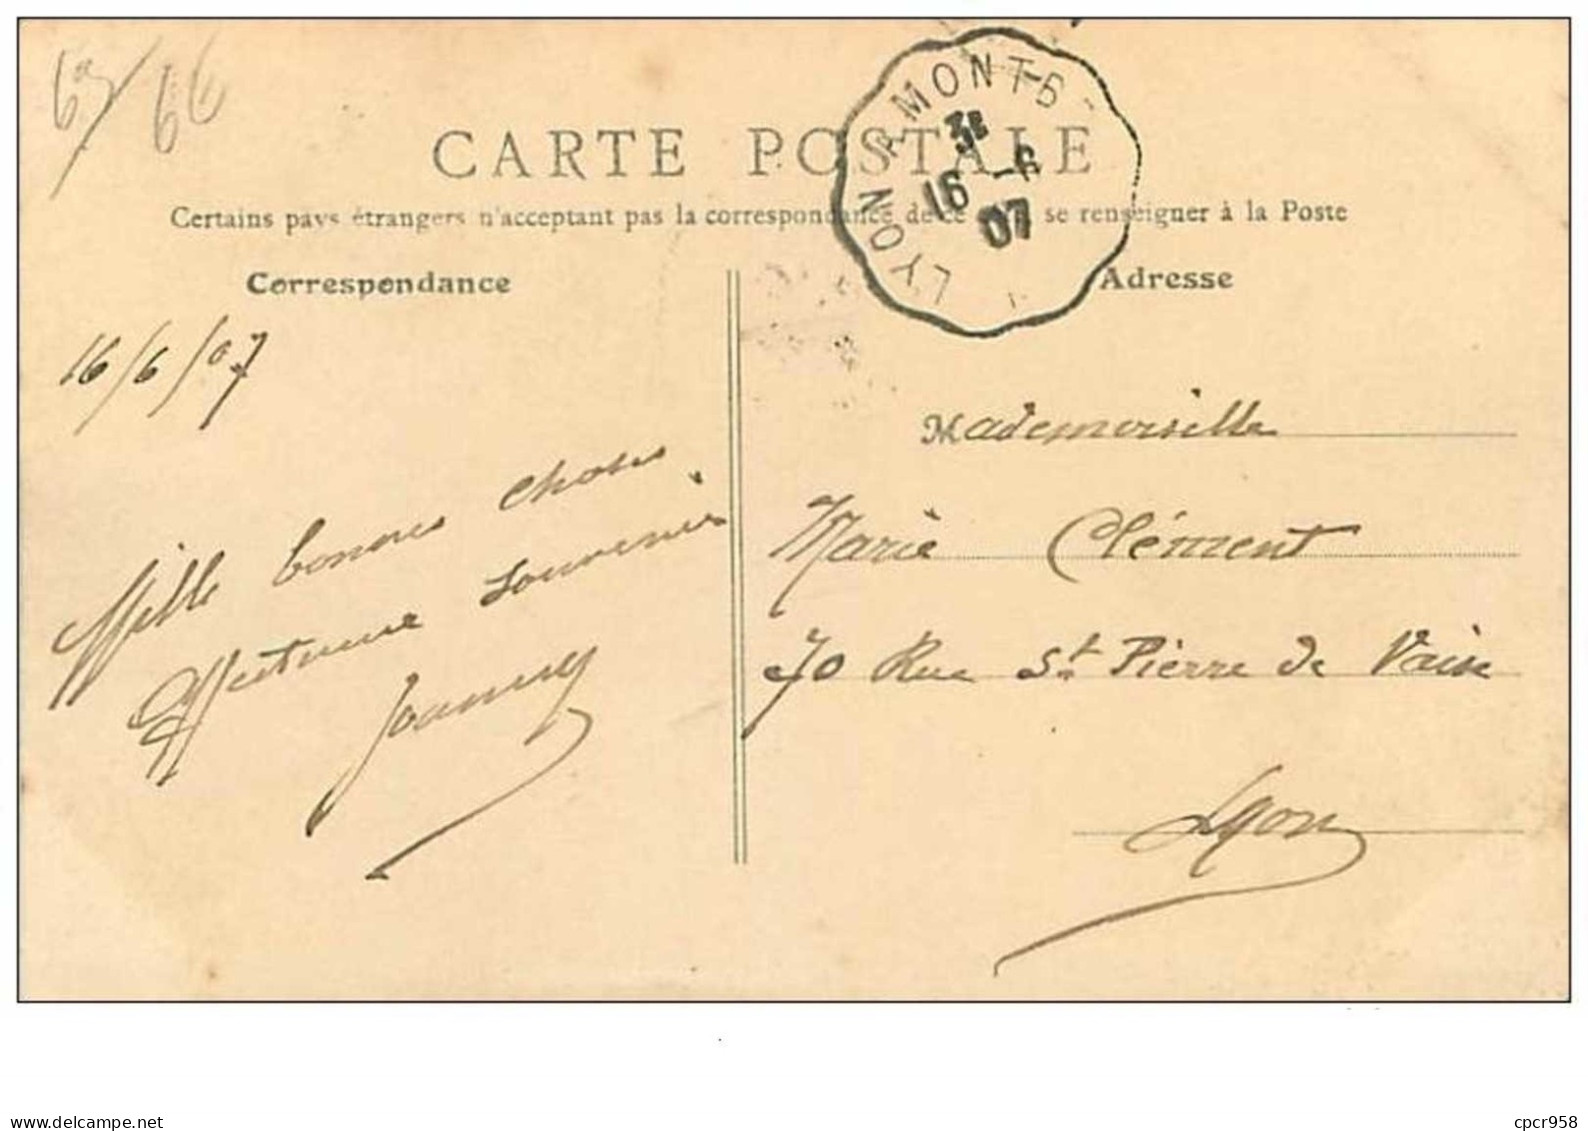 69/66
CARTE POSTALE
LYON A MONTB
3E
16 -6
07
Certains pays étrangers n'acceptant pas la correspondance de ce se renseigner à la Poste
Correspondance
Adresse
16/6/07
Mille bonnes choses
Affectueux souvenirs
Joanny
Mademoiselle
Marie Clément
70 Rue St Pierre de Vaise
Lyon
cpcr958